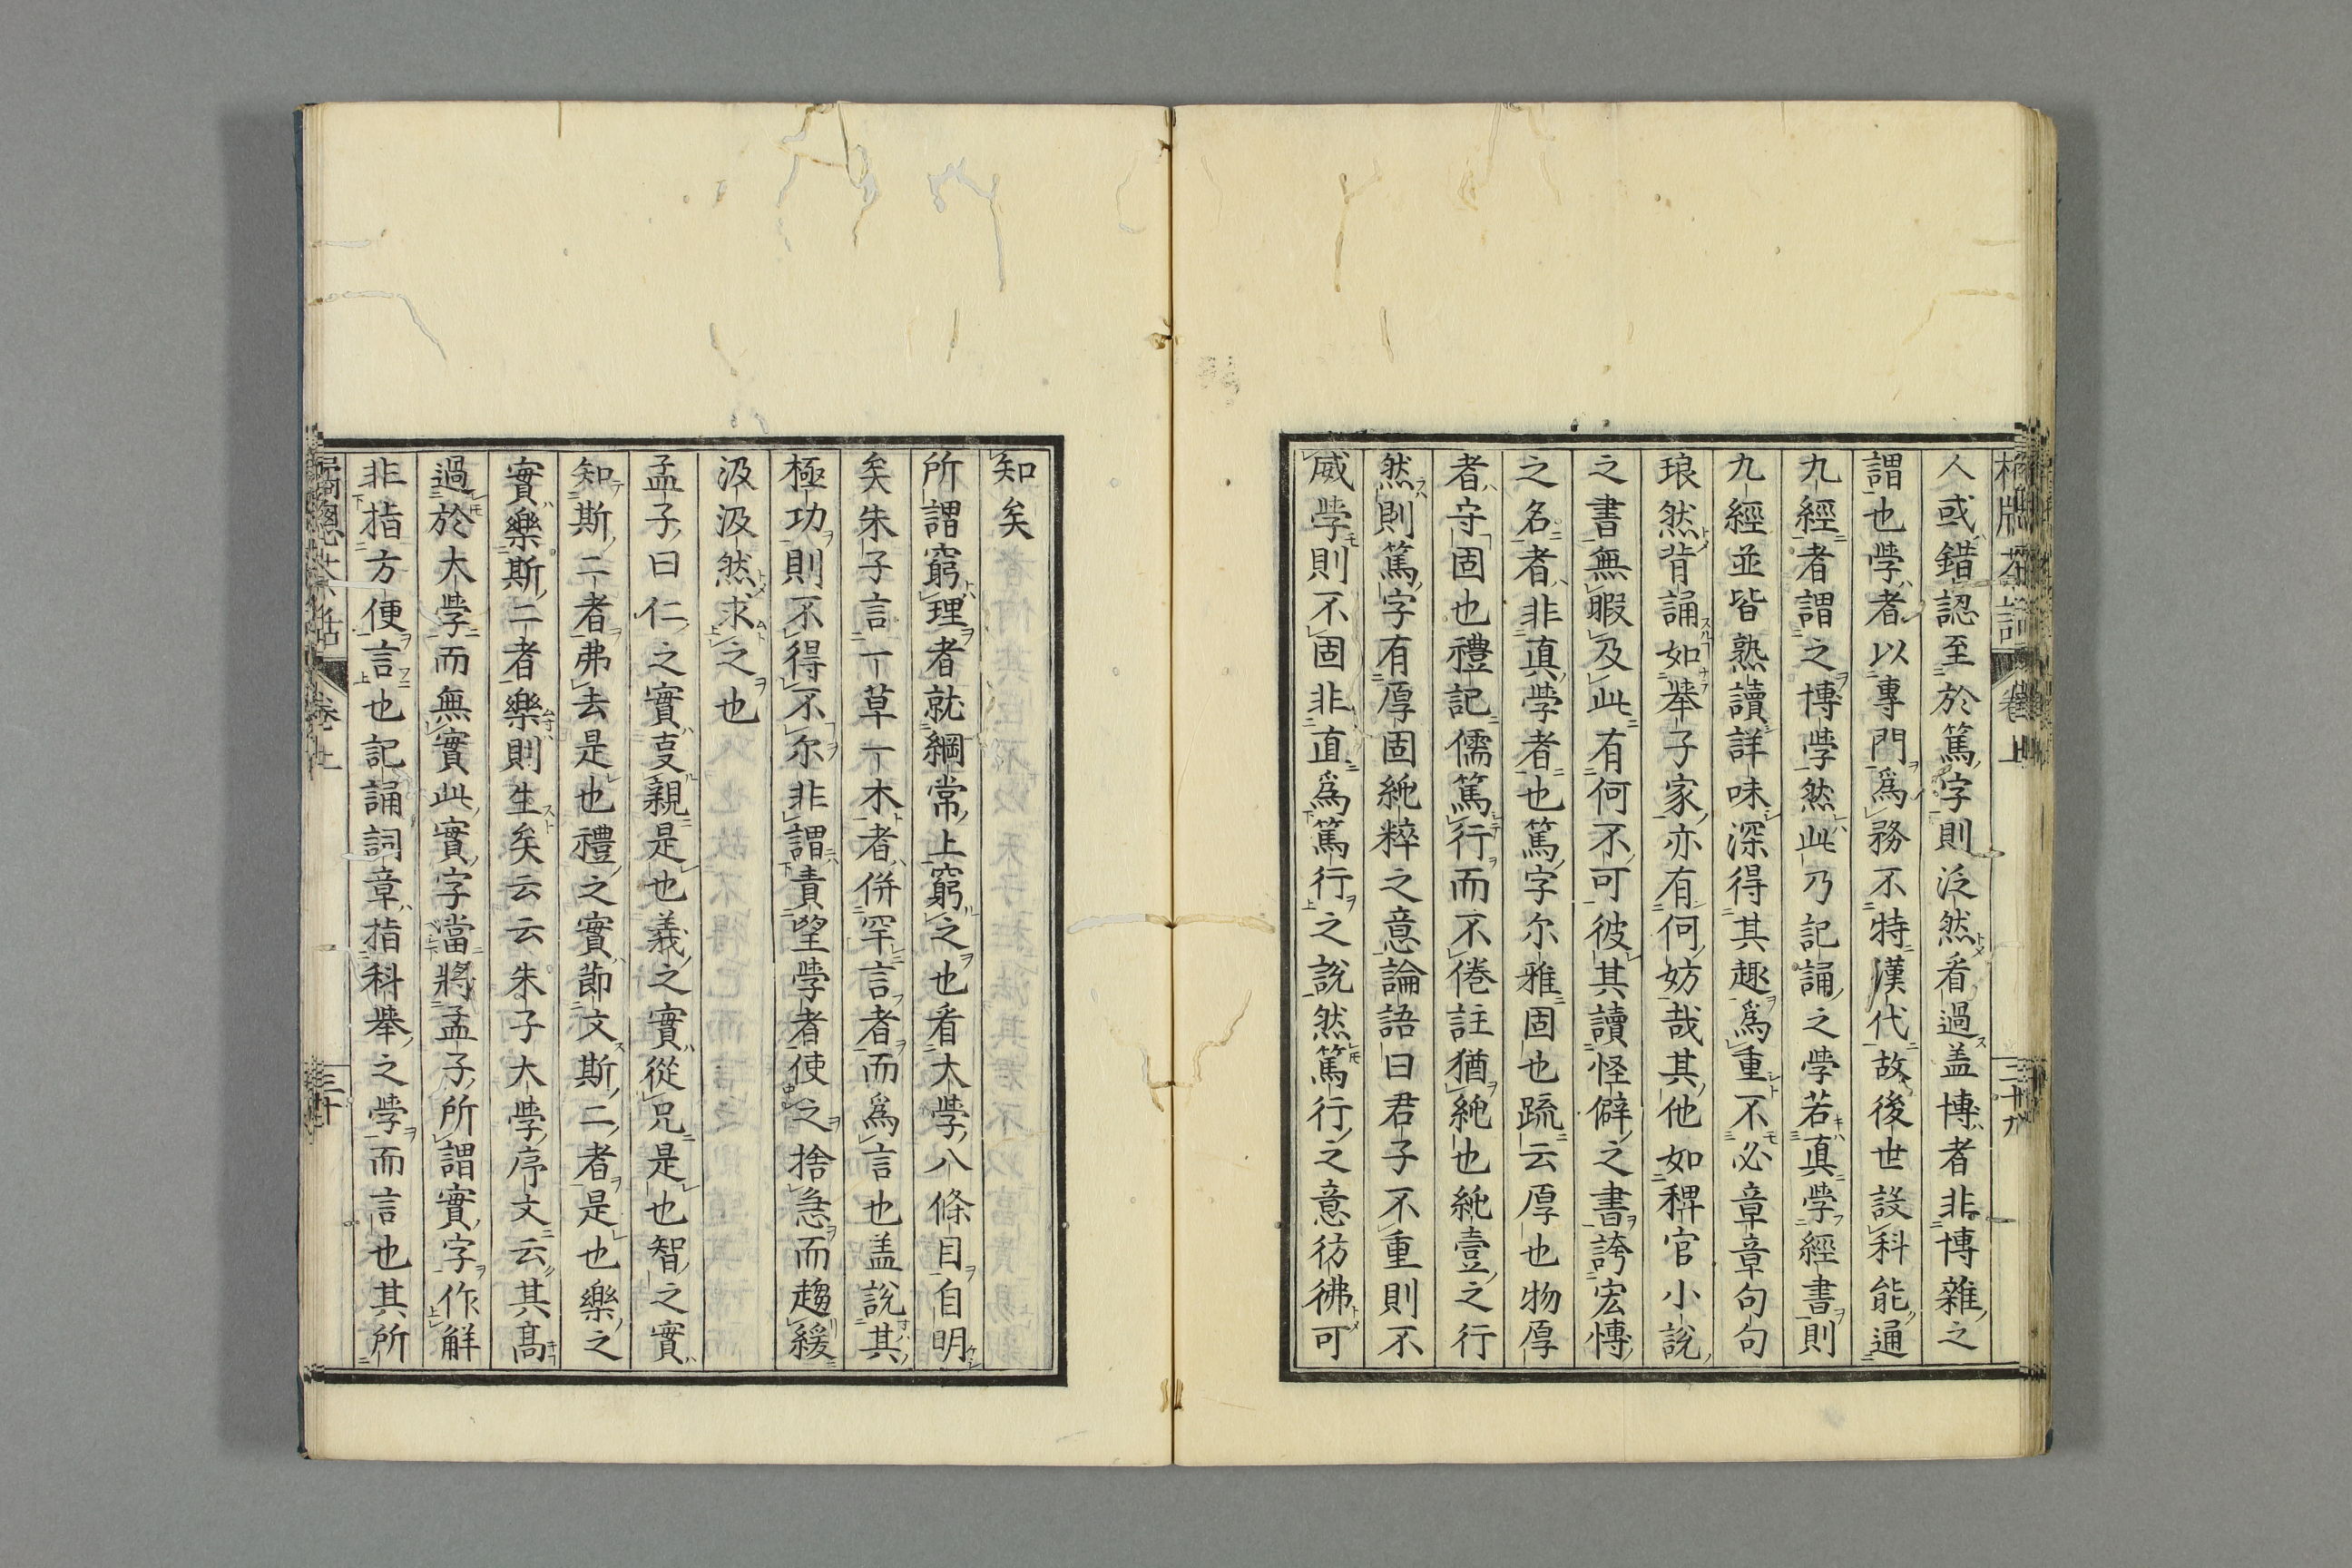 人或錯認至於篤字則泛然看過盖博者非博雜之
謂也學者以專門爲務不特漢代故後世設科能通
九經者謂之博學然此乃記誦之學若真學經書則
九經並皆熟讀詳味深得其趣爲重不必章章句句
琅然背誦如舉子家亦有何妨哉其他如稗官小說
之書無暇及此有何不可彼其讀怪僻之書誇宏慱
之名者非真學者也篤字尔雅固也疏云厚也物厚
者守固也禮記儒篤行而不倦註猶純也純壹之行
然則篤字有厚固純粹之意論語曰君子不重則不
威學則不固非直爲篤行之說然篤行之意彷彿可
知矣
所謂窮理者就綱常上窮之也看大學八條目自明
矣朱子言一草一木者併罕言者而爲言也盖說其
極功則不得不尔非謂責望學者使之捨急而趨緩
汲汲然求之也
孟子曰仁之實事親是也義之實從兄是也智之實
知斯二者弗去是也禮之實節文斯二者是也樂之
實樂斯二者樂則生矣云云朱子大學序文云其高
過於大學而無實此實字當將孟子所謂實字作解
非指方便言也記誦詞章指科舉之學而言也其所